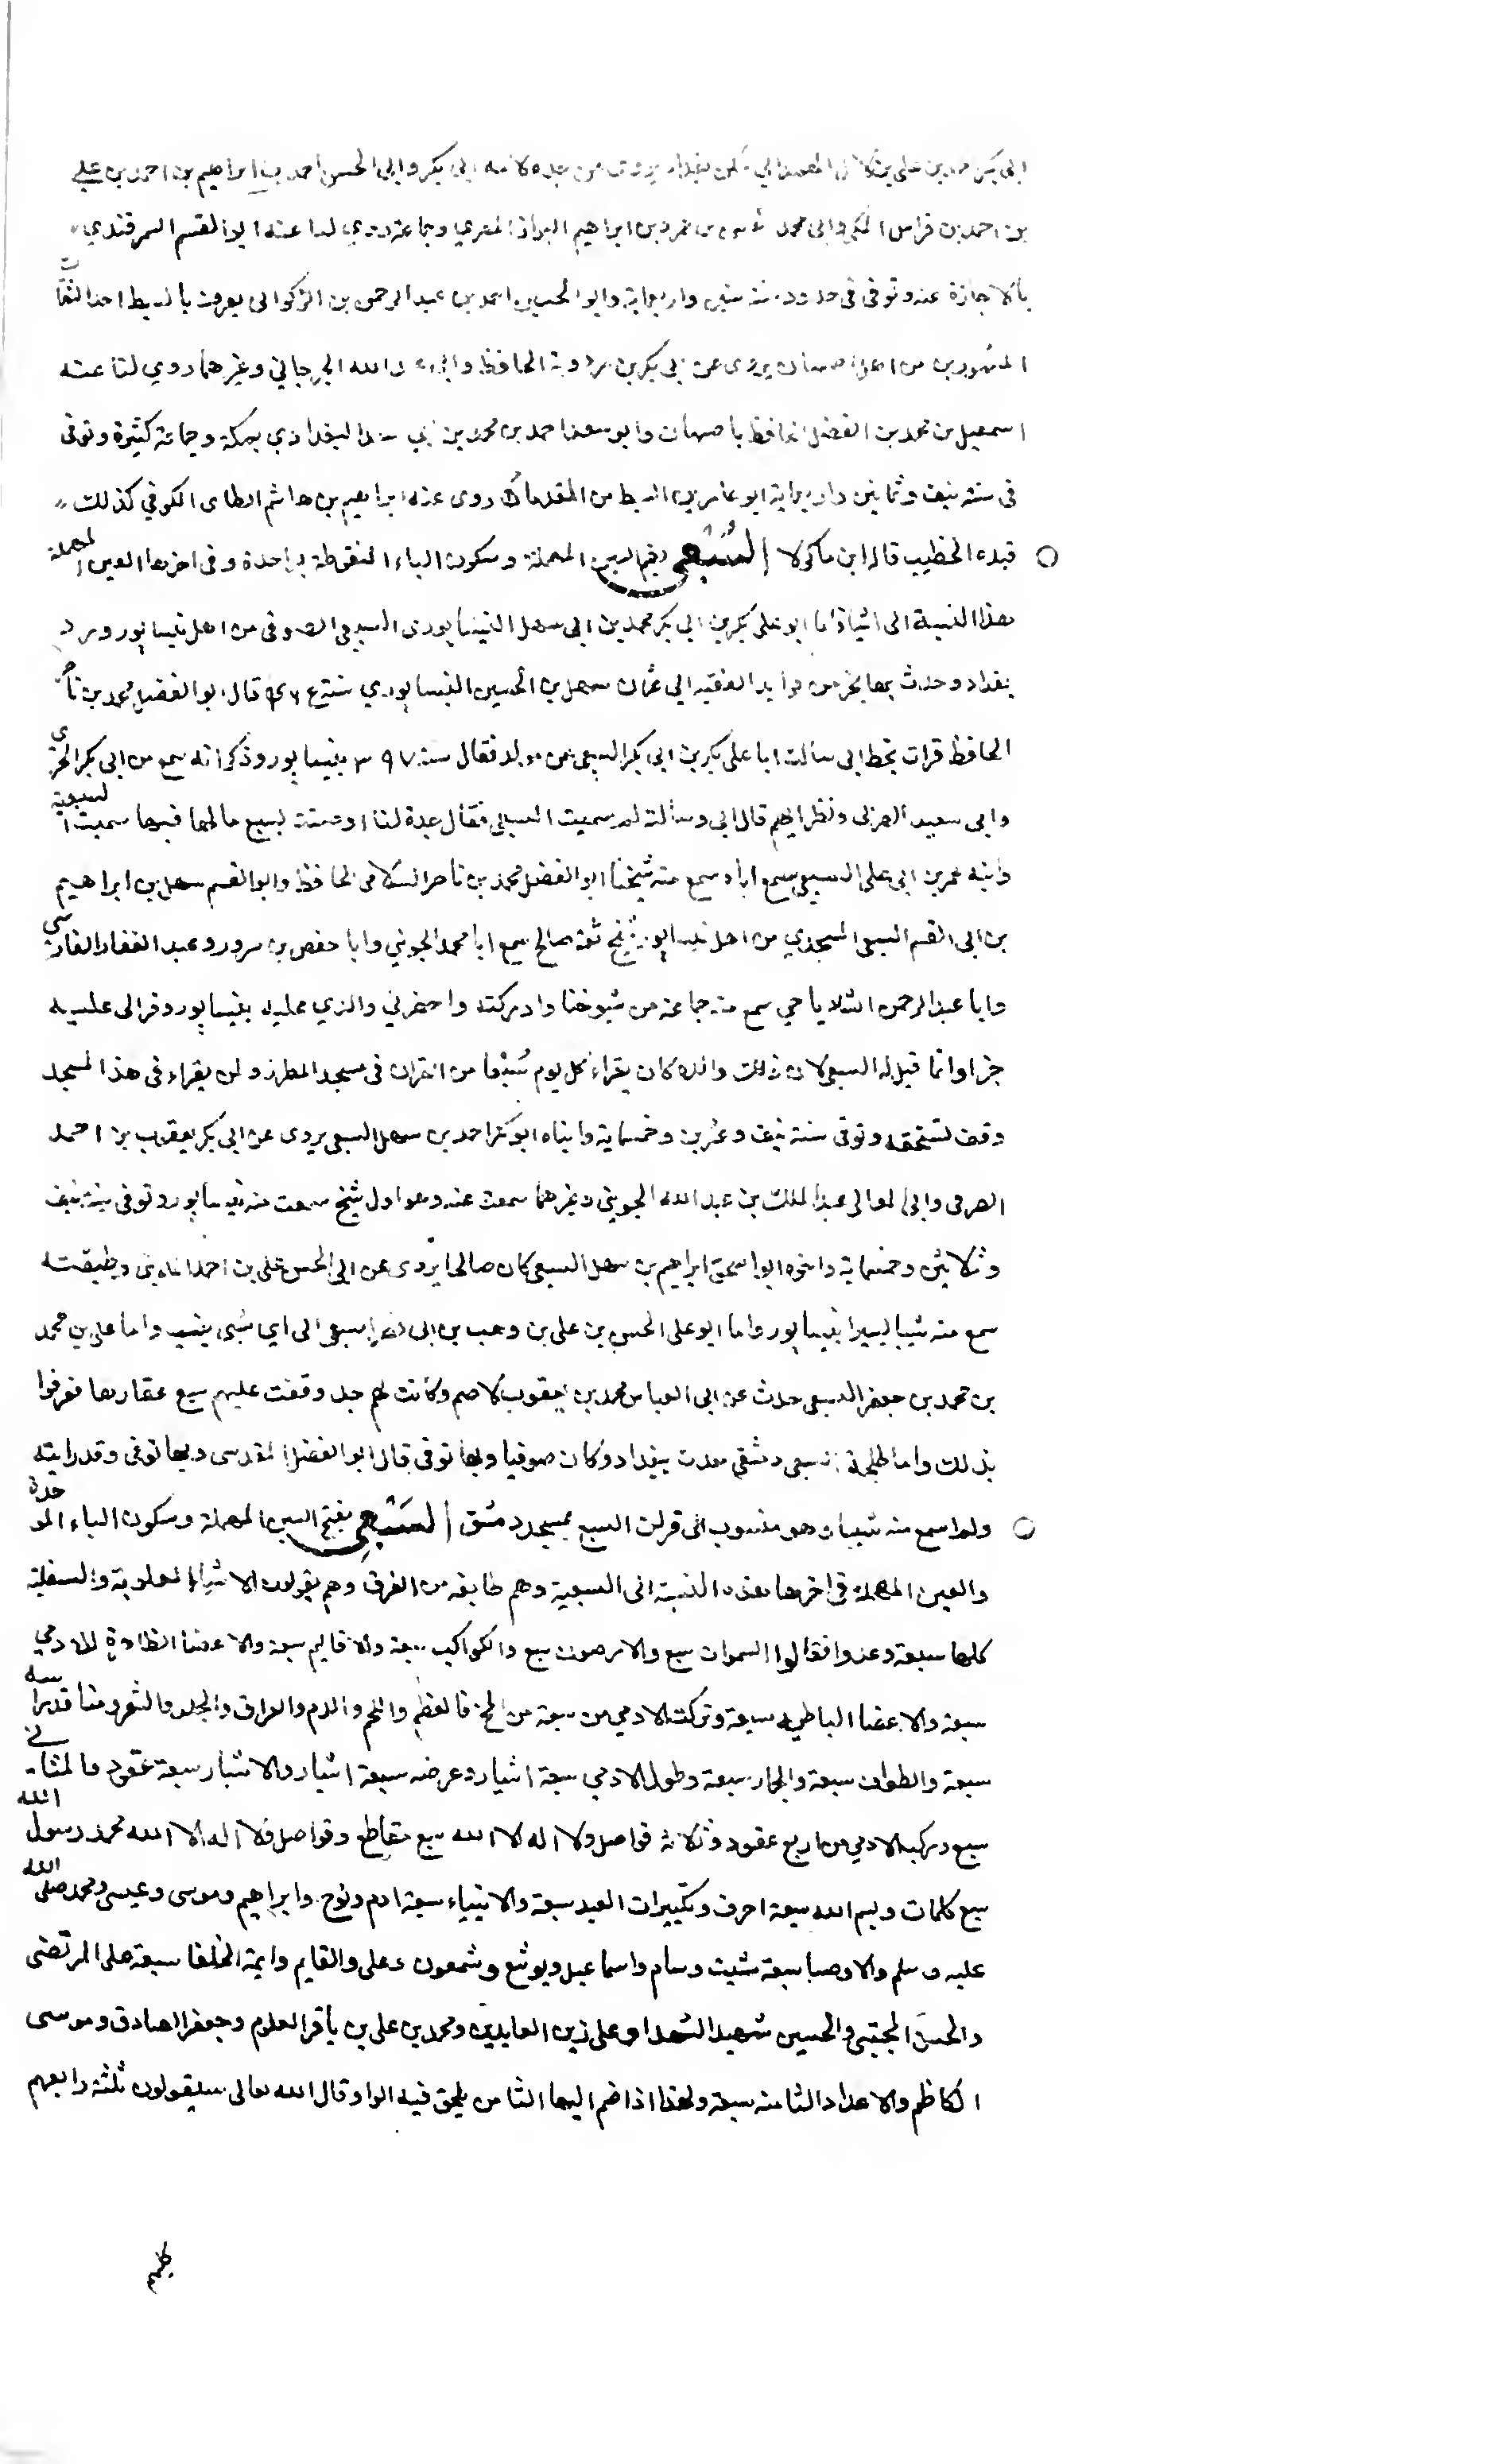 ابى بكر محمد بن على بن الهمداني سكن بغداد يروى عن جده لامه ابى بكر وابى الحسن احمد بن ابراهيم بن احمد بن على
بن احمد بن فراس المكى وابى محمد بن ابراهيم البزاز المقري وجماعة روي لنا عنه ابو القسم السمرقندي
بالاجازة عنه وتوفى فى حدود سنة ستين واربعماية وابو الحسين احمد بن عبد الرحمن بن الذكوانى يعرف بالسبط احد الثقات
المشهورين من اهل اصبهان يروى عن ابى بكر بن مردوية الحافظ وابى عبد الله الجرجاني وغيرهما روي لنا عنه
اسمعيل بن محمد بن الفضل الحافظ باصبهان وابو سعد احمد بن محمد بن ابي سعد البغدادي بمكة وجماعة كثيرة وتوفى
فى سنة نيف وثمانين واربعماية ابو عامر بن السبط من القدماء روى عنه ابراهيم بن هاشم الطاى الكوفي كذلك
قيده الخطيب قاله ابن ماكولا السُبْعى بضم السين المهملة وسكون الباء المنقوطة بواحدة وفى اخرها العين المهملة
هذا النسبة الى اشياء اما ابو على بكر بن ابى بكر محمد بن ابى سهل النيسابورى السبعى الصوفى من اهل نيسابور ورد
بغداد وحدث بها بجز من فوايد الفقيه ابى عثمان سهل بن الحسين النيسابوري سنة قال ابو الفضل محمد بن ناصر
الحافظ قرات بخط ابى سالت ابا على بكر بن ابى بكر السبعى عن مولده فقال سنة ٣٩٧ بنيسابور وذكر انه سمع من ابى بكر الحيرى
وابى سعيد الصرفى ونظرايهم قال ابى وسالته لم سميت السبعى فقال جدة لنا اوصت بسبع مالها فيها سميت السبعية
وابنه عمر بن ابى على السبعى سمع اباه سمع منه شيخنا ابو الفضل محمد بن ناصر السلامى الحافظ وابو القسم سهل بن ابراهيم
بن ابى القسم السبعى المسجدي من اهل نيسابور شيخ ثقة صالح سمع ابا محمد الجوينى وابا حفص بن مسرور وعبد الغفار الفارسى
وابا عبد الرحمن الشاذياخي سمع منه جماعة من شيوخنا وادركته واحضرني والدي مجلسه بنيسابور وقرا لى عليه
جزا وانما قيل له السبعى لان ذلك والده كان يقراء كل يوم سُبْعا من القران فى مسجد المطرز ولمن يقراء فى هذا المسجد
وقف لستحقه وتوفى سنة نيف وعشرين وخمسماية وابناه ابو بكر احمد بن سهل السبعى يروى عن ابى بكر يعقوب بن احمد
الصرفى وابى المعالى عبد الملك بن عبد الله الجوينى وغيرهما سمعت عنه وهو اول شيخ سمعت منه بنيسابور وتوفى سنة نيف
وثلاثين وخمسماية واخوه ابو اسحق ابراهيم بن سهل السبعى كان صالحا يروى عن ابى الحسن على بن احمد المدينى وطبقته
سمع منه شيا يسيرا بنيسابور واما ابو على الحسن بن على بن وهب بن ابى السبعى الى اي شى ينسب واما على بن محمد
بن محمد بن جعفر السبعى حدث عن ابى العباس محمد بن يعقوب الاصم وكانت لهم جد وقفت عليهم سبع عقارها فعرفوا
بذلك واما طلحة السبعى دمشقى حدث ببغداد وكان صوفيا وبها توفى قال ابو الفضل المقدسى وبها توفى وقد رايته
ولم اسمع منه شيا وهو منسوب الى قراة السبع بمسجد دمشق السَبْعِى بفتح السين المهملة وسكون الباء الموحدة
والعين المهملة فى اخرها هذه النسبة الى السبعية وهم طايفه من الفرق وهم يقولون الاشياء العلوية والسفلية
كلها سبعة وعدوا فقالوا السموات سبع والارضون سبع والكواكب سبعة والاقاليم سبعة والاعضا الظاهرة للادمي
سبعة والاعضا الباطنه سبعة وتركب الادمى من سبعة من المخ فالعظم واللحم والدم والعراق والجلد والشعر ومنافذ راسه
سبعة والطواف سبعة والجمار سبعة وطول الادمي سبعة اشبار وعرضه سبعة اشبار والاشبار سبعة عقود فالمثانى
سبع وتركيب الادمي من اربع عقود وثلاثة فواصل ولا اله الا الله سبع مقاطع وفواصل فلا اله الا الله محمد رسول الله
سبع كلمات وبسم الله سبعة احرف وتكبيرات العيد سبعة والانبياء سبعة ادم ونوح وابراهيم وموسى وعيسى ومحمد صلى الله
عليه وسلم والاوصيا سبعة شيث وسام واسماعيل ويوشع وشمعون وعلى والقايم وايمة الخلفا سبعة على المرتضى
والحسن المجتبى والحسين شهيد الشهدا وعلى زين العابدين ومحمد بن على بن باقر العلوم وجعفر الصادق وموسى
الكاظم والاعداد الثامنه سبعة ولهذا اذا ضم اليها الثامن يلحق فيه الواو قال الله تعالى سيقولون ثلثة رابعهم
كلبهم